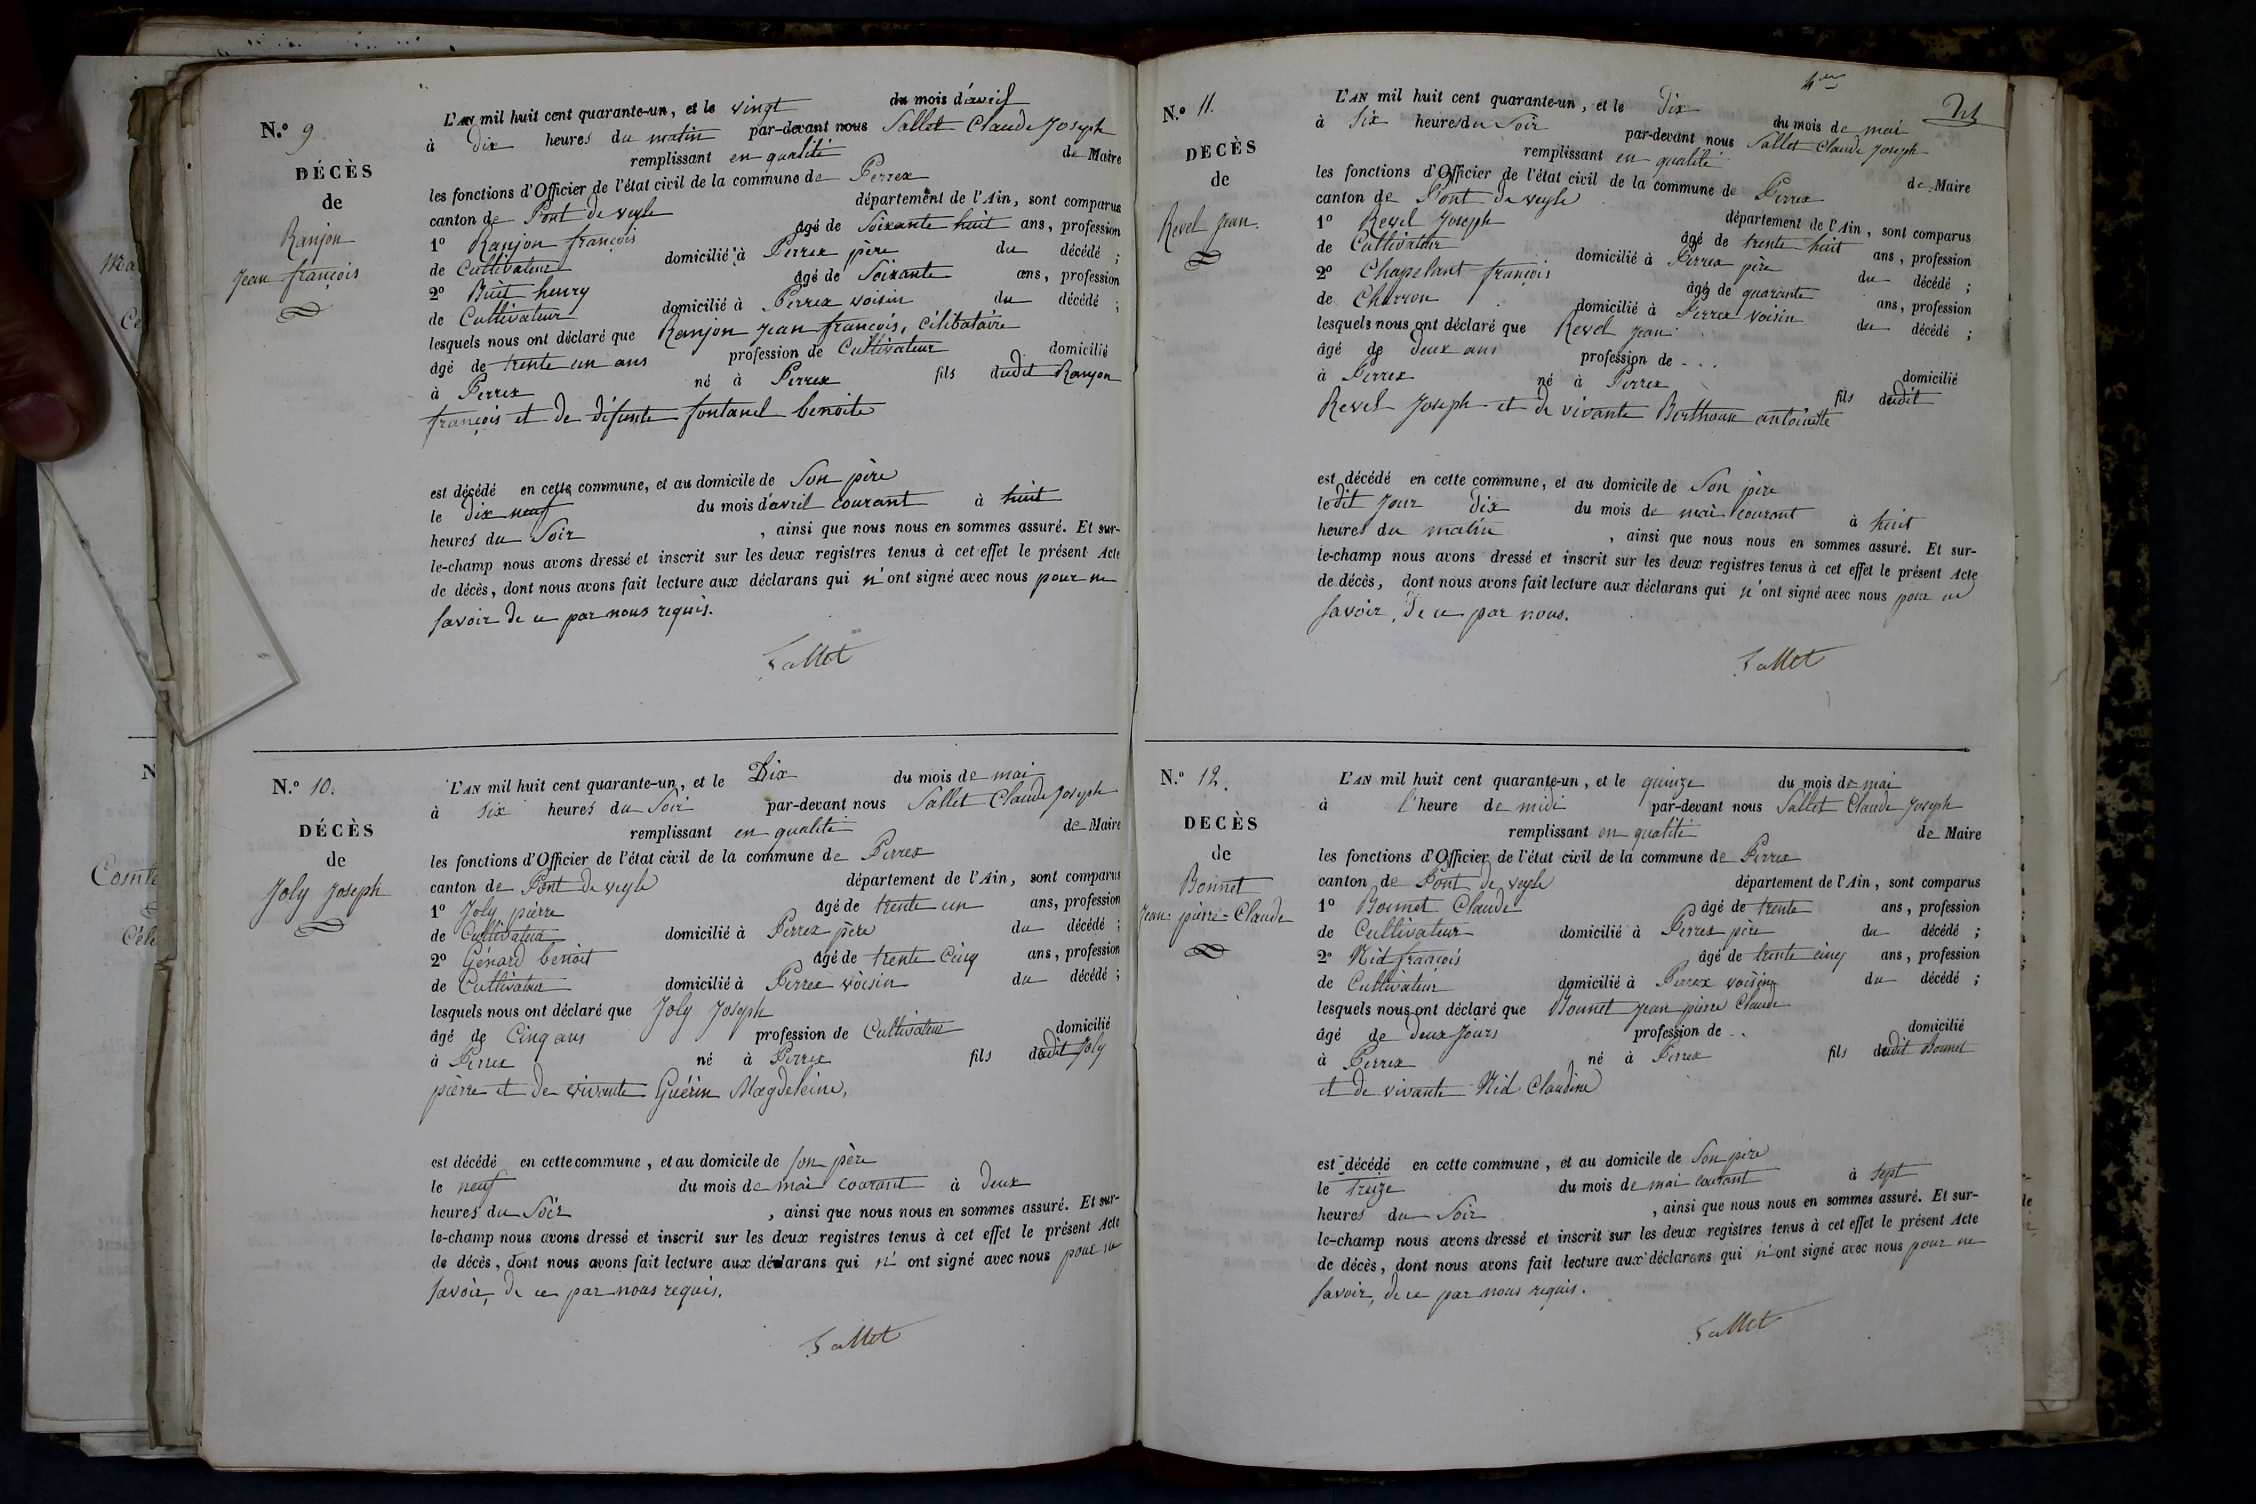 N.º 9
DÉCÈS
de
Ranjon
Jean françois
L'AN mil huit cent quarante-un, et le vingt du mois d'avril
à Dix heures du matin par-devant nous Sallet Claude Joseph
remplissant en qualité de Maire
les fonctions d'Officier de l'état civil de la commune de Perrex
canton de Pont de veyle département de l'Ain, sont comparus
1º Ranjon françois âgé de Soixante huit ans, profession
de Cultivateur domicilié à Perrex père du décédé ;
2º Buit henry âgé de Soixante ans, profession
de Cultivateur domicilié à Perrex voisin du décédé ;
lesquels nous ont déclaré que Ranjon Jean françois, célibataire
âgé de trente un ans profession de Cultivateur domicilié
à Perrex né à Perrex fils dudit Ranjon
françois et de défunte fontanel benoite
est décédé en cette commune, et au domicile de Son père
le dix neuf du mois d'avril courant à huit
heures du Soir , ainsi que nous nous en sommes assuré. Et sur-
le-champ nous avons dressé et inscrit sur les deux registres tenus à cet effet le présent Acte
de décès, dont nous avons fait lecture aux déclarans qui n'ont signé avec nous pour ne
savoir de ce par nous requis.
Sallet
N.º 10.
DÉCÈS
de
Joly Joseph
L'AN mil huit cent quarante-un, et le Dix du mois de mai
à six heures du Soir par-devant nous Sallet Claude Joseph
remplissant en qualité de Maire
les fonctions d'Officier de l'état civil de la commune de Perrex
canton de Pont de veyle département de l'Ain, sont comparus
1º Joly pierre âgé de trente un ans, profession
de Cultivateur domicilié à Perrex père du décédé ;
2º Genard benoit âgé de trente Cinq ans, profession
de Cultivateur domicilié à Perrex voisin du décédé ;
lesquels nous ont déclaré que Joly Joseph
âgé de Cinq ans profession de Cultivateur domicilié
à Perrex né à Perrex fils dudit Joly
pierre et de vivante Guérin Magdeleine,
est décédé en cette commune, et au domicile de son père
le neuf du mois de mai courant à deux
heures du Soir , ainsi que nous nous en sommes assuré. Et sur-
le-champ nous avons dressé et inscrit sur les deux registres tenus à cet effet le présent Acte
de décès, dont nous avons fait lecture aux déclarans qui n'ont signé avec nous pour ne
savoir, de ce par nous requis.
Sallet
N.º 11.
DECÈS
de
Revel Jean.
L'AN mil huit cent quarante-un, et le Dix du mois de mai
à Six heures du Soir par-devant nous Sallet Claude Joseph
remplissant en qualité de Maire
les fonctions d'Officier de l'état civil de la commune de Perrex
canton de Pont de veyle département de l'Ain, sont comparus
1º Revel Joseph âgé de trente huit ans, profession
de Cultivateur domicilié à Perrex père du décédé ;
2º Chapelant françois âgé de quarante ans, profession
de Charron domicilié à Perrex voisin du décédé ;
lesquels nous ont déclaré que Revel Jean
âgé de deux ans profession de - - - domicilié
à Perrex né à Perrex fils dudit
Revel Joseph et de vivante Berthoux antoinette
est décédé en cette commune, et au domicile de Son père
ledit jour Dix du mois de mai courant à huit
heures du matin , ainsi que nous nous en sommes assuré. Et sur-
le-champ nous avons dressé et inscrit sur les deux registres tenus à cet effet le présent Acte
de décès, dont nous avons fait lecture aux déclarans qui n'ont signé avec nous pour ne
savoir, de ce par nous.
Sallet
N.º 12.
DECÈS
de
Bonnet
Jean-pierre-Claude
L'AN mil huit cent quarante-un, et le quinze du mois de mai
à l'heure de midi par-devant nous Sallet Claude Joseph
remplissant en qualité de Maire
les fonctions d'Officier de l'état civil de la commune de Perrex
canton de Pont de veyle département de l'Ain, sont comparus
1º Bonnet Claude âgé de trente ans, profession
de Cultivateur domicilié à Perrex père du décédé ;
2º Nid françois âgé de trente cinq ans, profession
de Cultivateur domicilié à Perrex voisin du décédé ;
lesquels nous ont déclaré que Bonnet Jean pierre Claude
âgé de deux Jours profession de - - domicilié
à Perrex né à Perrex fils dudit Bonnet
et de vivante Nid Claudine
est décédé en cette commune, et au domicile de Son père
le treize du mois de mai courant à sept
heures du Soir , ainsi que nous nous en sommes assuré. Et sur-
le-champ nous avons dressé et inscrit sur les deux registres tenus à cet effet le présent Acte
de décès, dont nous avons fait lecture aux déclarans qui n'ont signé avec nous pour ne
savoir, de ce par nous requis.
Sallet